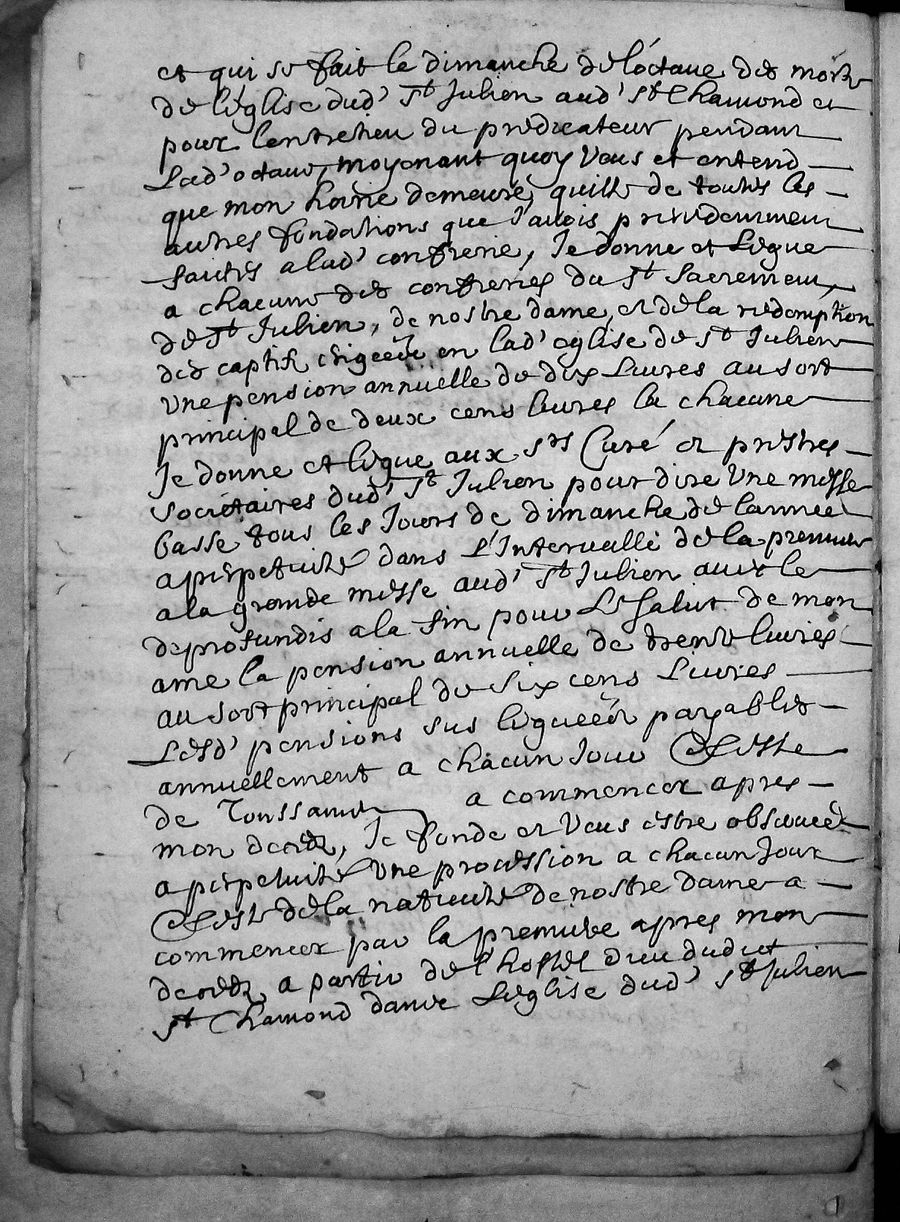 et qui se fait le dimanche de l'octave des morts
de l'église dud' St Julien aud' St Chamond et
pour l'entretien du predicateur pendant
Lad' octave, moyenant quoy Veus et entend
que mon hoirie demeure quitte de toutes les
autres fondations que J'avois precedemment
faites a lad' confrerie, Je donne et Legue
a chacune des confreries du St Sacrement,
de St Julien, de nostre dame, et de la redemption
des captifs erigeés en lad' eglise de St Julien
Une pension annuelle de dix Livres au sort
principal de deux cens livres la chacune
Je donne et legue aux srs Curé et prestres
sociétaires dud' St Julien pour dire Une messe
basse tous les Jours de dimanche de lannee
a perpetuité dans L'Intervalle de la premiere
a la grande messe aud' St Julien avec le
deprofundis a la fin pour Le Salut de mon
ame la pension annuelle de trente livres
au sort principal de six cens Livres
Lesd' pensions sus legueés payables
annuellement a chacun Jour & feste
de Toussaint a commencer apres
mon deceds, Je fonde et Veus estre observeé
a perpetuité Une procession a chacun Jour
& feste de la nativité de nostre dame a
commencer par la premiere apres mon
deceds, a partir de l'hostel dieu dudict
St Chamond dans L'église dud' St Julien